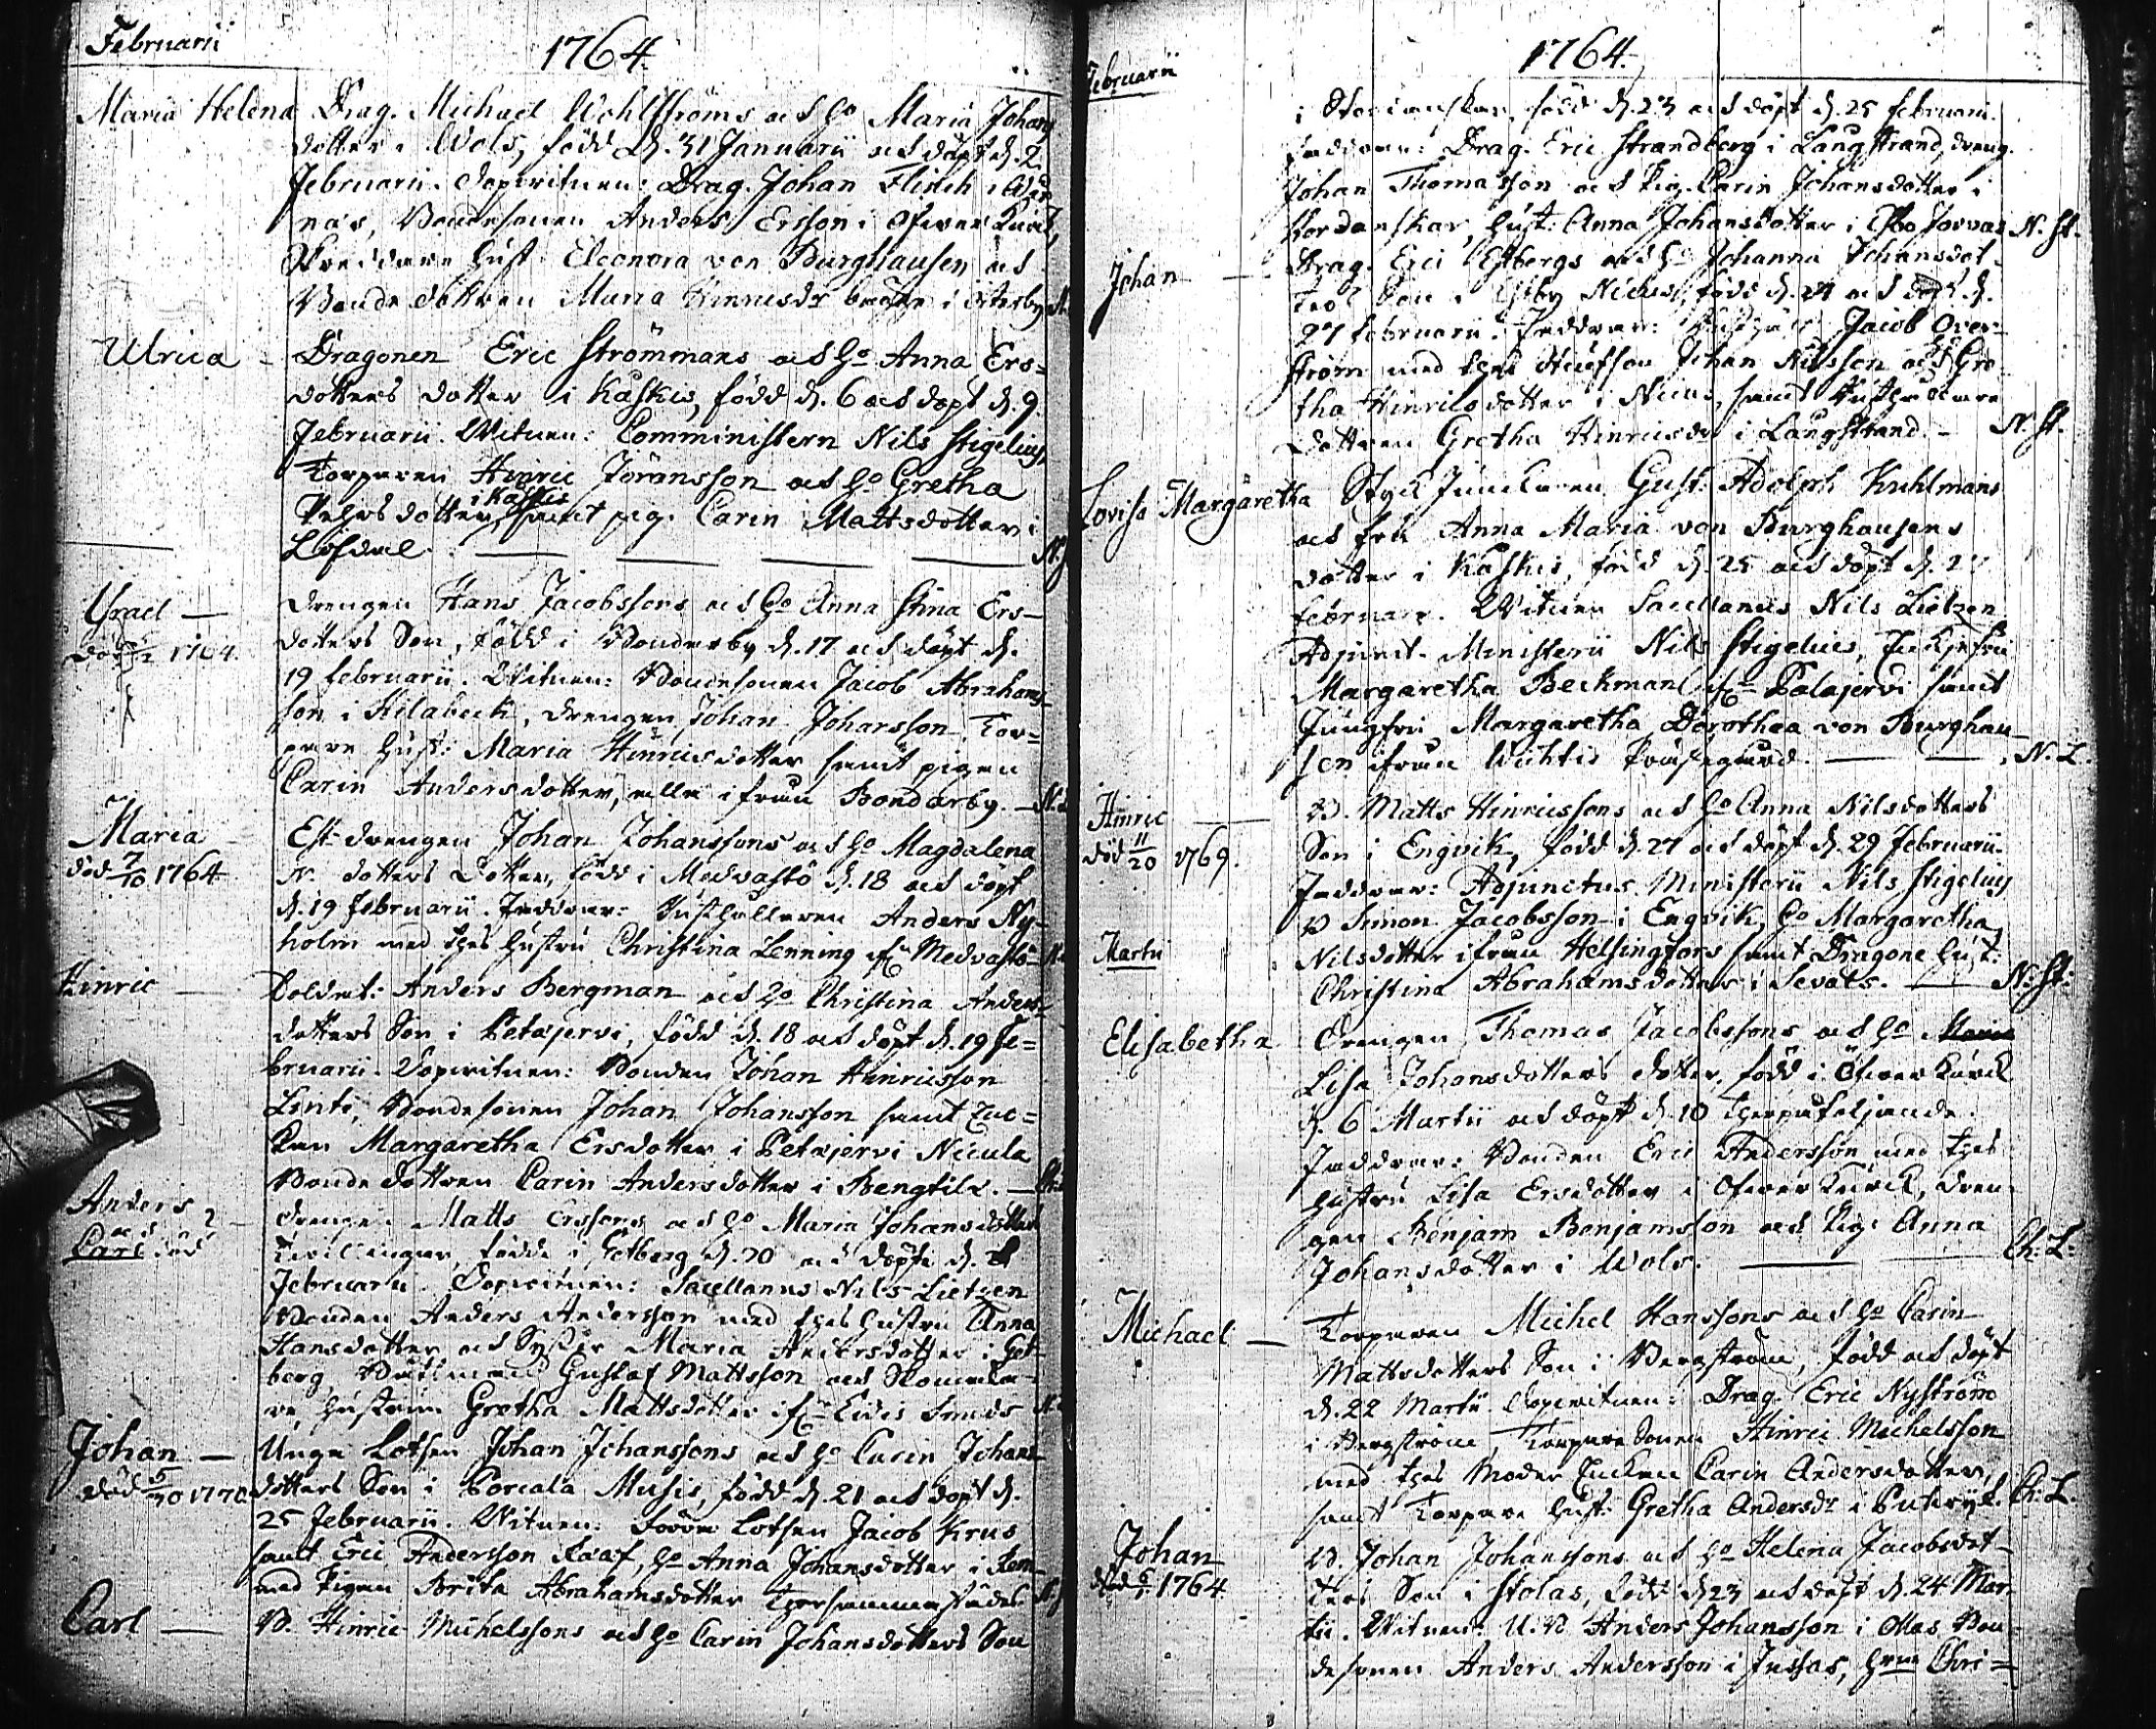 Februarii
1764
Maria Helena Drag. Michael Wohlströms och h:o Maria Johans
dotter i Wols, född d. 31 Januarii och döpt d. 2
Februarii. Dopwitnen: Drag. Johan Flinck i
näs, Bondesonen Anders Ersson i Öfwer Kurck,
hust. Eleonora von Burghausen och
Bonde dottren Maria Hinricsdr i Österby
Ulrica - Dragonen Eric Strömmans och h:o Anna Ers=
dotters dotter i Kaskis, född d. 6 och döpt d. 9
Februarii. Witnen: Comministern Nils Stigelius,
Torparen Hinric Jöransson och h:o Gretha
i Kaskis
dotter, samt pig. Carin Mattsdotter i
Löfdal.
Israel - Drengen Hans Jacobssons och h:o Anna Stina Ers-
död 1764. dotters Son, född i Bonderby d. 17 och döpt d.
19 februarii. Witnen: Bondesonen Jacob Abrahams
son i Kilabeck, drengen Johan Johansson, Tor=
pare hust: Maria Hinricsdotter samt pigan
Carin Andersdotter, alla ifrån Bondarby.
Maria - drengen Johan Johanssons och h:o Magdalena
död 7/10 1764 N. dotters dotter, född i Medvastö d. 18 och döpt
d. 19 februarii. Faddrar: Rusthållaren Anders Ny-
holm med thes hustru Christina Lenning Medvastö
Hinric - Soldat: Anders Bergman och h:o Christina Anders=
dotters Son i Petajervi, född d. 18 och döpt d. 19 Fe=
bruarii. Dopwitnen: Bonden Johan Hinricsson
Lenti, Bondesonen Johan Johansson samt En=
kan Margaretha Ersdotter i Petajervi Niicula
Bonde dottren Carin Andersdotter i Bengtila.
Anders Drengen Matts Erssons och h:o Maria Johansdotters
Carl död Twillingar, födde i Getberg d. 20 och döpte d.
Februarii. Dopwitnen: Sacellanus Nils Lietzen
Bonden Anders Andersson med thes hustru Anna
Hansdotter och Syster Maria Andersdotter i Get-
berg, Gustaf Mattsson och
hustrun Gretha Mattsdotter
Johan - Unga Lotsen Johan Johanssons och h:o Carin Johans
död 5/30 1770. dotters Son i Porcala Musis, född d. 21 och döpt d.
25 Februarii. Witnen: Lotsen Jacob Krus
samt Eric Andersson Raaf, h:o Anna Johansdotter i
med Pigan Brita Abrahamsdotter thersammastädes
Carl - B. Hinric Michelssons och h:o Carin Johansdotters Son
Februarii
1764.
i född d. 23 och döpt d. 25 februarii.
Faddrar: Drag. Eric Strandberg i Långstrand, dreng.
Johan Thomasson och Pig. Carin Johansdotter i
hust: Anna Johansdotter i N. St.
Johan - Drag. Eric Estbergs och h:o Johanna Johansdot-
ters Son i Estby född d. 24 och döpt d.
27 februarii. Faddrar: Jacob Över-
ström med thes Johan Nilsson och Gre
tha Hinricsdotter i samt
dottren Gretha Hinricsdr i Långstrand. - N. St.
Lovisa Margaretha Styck Junckaren Gust. Adolph Kuhlmans
och fru Anna Maria von Burghausens
dotter i Kaskis, född d. 25 och döpt d. 27
februarii. Witnen Sacellanus Nils Lietzen
Adjunct. Ministerii Nils Stigelius, Enkjefru
Margaretha Beckman Palajervi samt
Jungfru Margaretha Dorothea von Burghau-
sen ifrån Wichtis Prästegård. N. L.
Hinric - B. Matts Hinricssons och h:o Anna Nilsdotters
död 11/20 1769. Son i Engvik, född d. 27 och döpt d. 29 Februarii.
Faddrar: Adjunctus Ministerii Nils Stigelius
B Simon Jacobsson i Engvik, h:o Margaretha
Martii Nilsdotter ifrån Helsingfors samt Dragone hust:
Christina Abrahamsdotter i Sevats. N: St:
Elisabetha Drengen Thomas Jacobssons och h:o Maria
Lisa Johansdotters dotter, född i Öfwer Kurck
d. 6 Martii och döpt d. 10 therpåföljande.
Faddrar: Bonden Eric Andersson med thes
hustru Lisa Ersdotter i Öfwer Kurck, dren-
gen Benjam Benjamsson och Pig: Anna
Johansdotter i Wols. Ch: L:
Michael - Torparen Michel Hanssons och h:o Carin
Mattsdotters Son i Bergström, född och döpt
d. 22 Martii. Dopwitnen: Drag. Eric Nyström
i Bergström, Torpare Sonen Hinric Michelsson
med thes Moder Enckan Carin Andersdotter,
samt Torpare hust: Gretha Andersdr i Ch: L.
Johan B. Johan Johanssons och h:o Helena Jacobsdot-
död 1764 ters Son i Stolas, född d. 23 och döpt d. 24 Mar-
tii. Witnen: U. B Anders Johansson i Bon-
desonen Anders Andersson i Jussas, Chri=